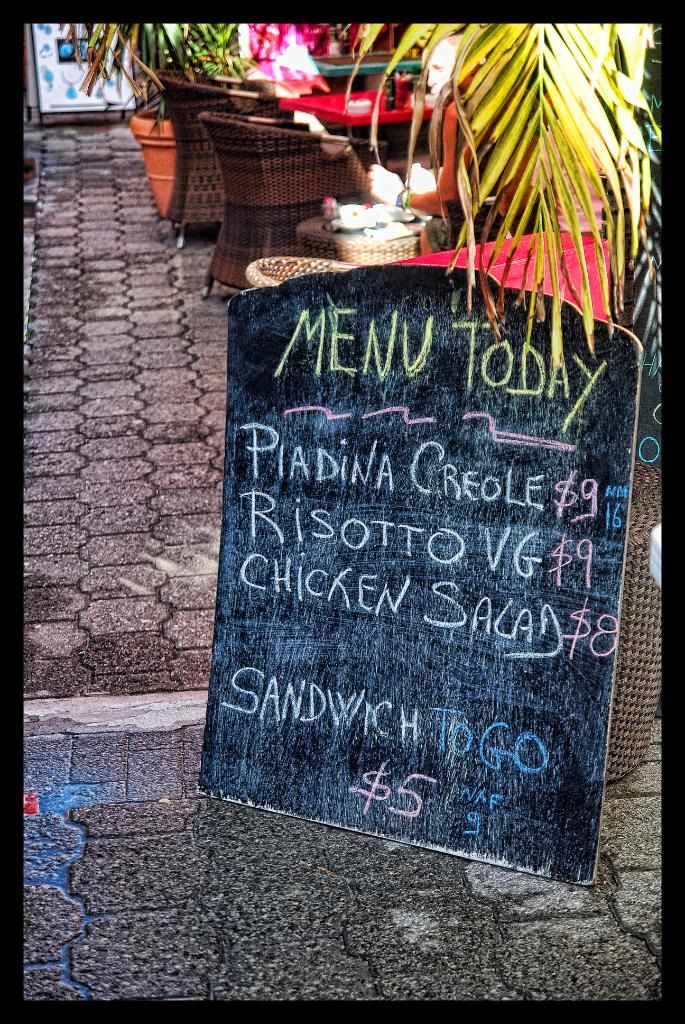 MENU TODAY
PIADINA CREOLE $9 NAF 16
RISOTTO VG $9
CHICKEN SALAD $8
SANDWICH TO GO
$5 NAF 9